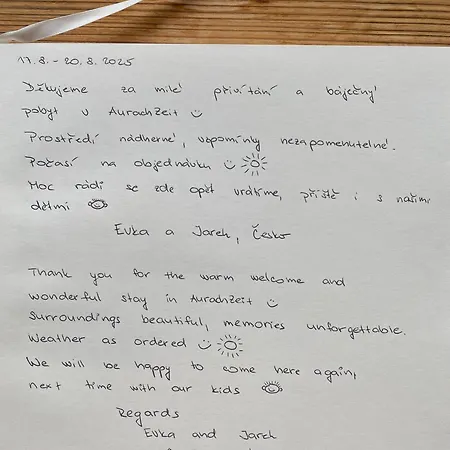 17.8. - 20.8.2025
Děkujeme za milé přivítání a báječný
pobyt v AurachZeit ☺
Prostředí nádherné, vzpomínky nezapomenutelné.
Počasí na objednávku ☺ ☀
Moc rádi se zde opět vrátíme, příště i s našimi
dětmi
Evka a Jarek, Česko
Thank you for the warm welcome and
wonderful stay in AurachZeit ☺
Surroundings beautiful, memories unforgettable.
Weather as ordered ☺ ☀
We will be happy to come here again,
next time with our kids
Regards
Evka and Jarek